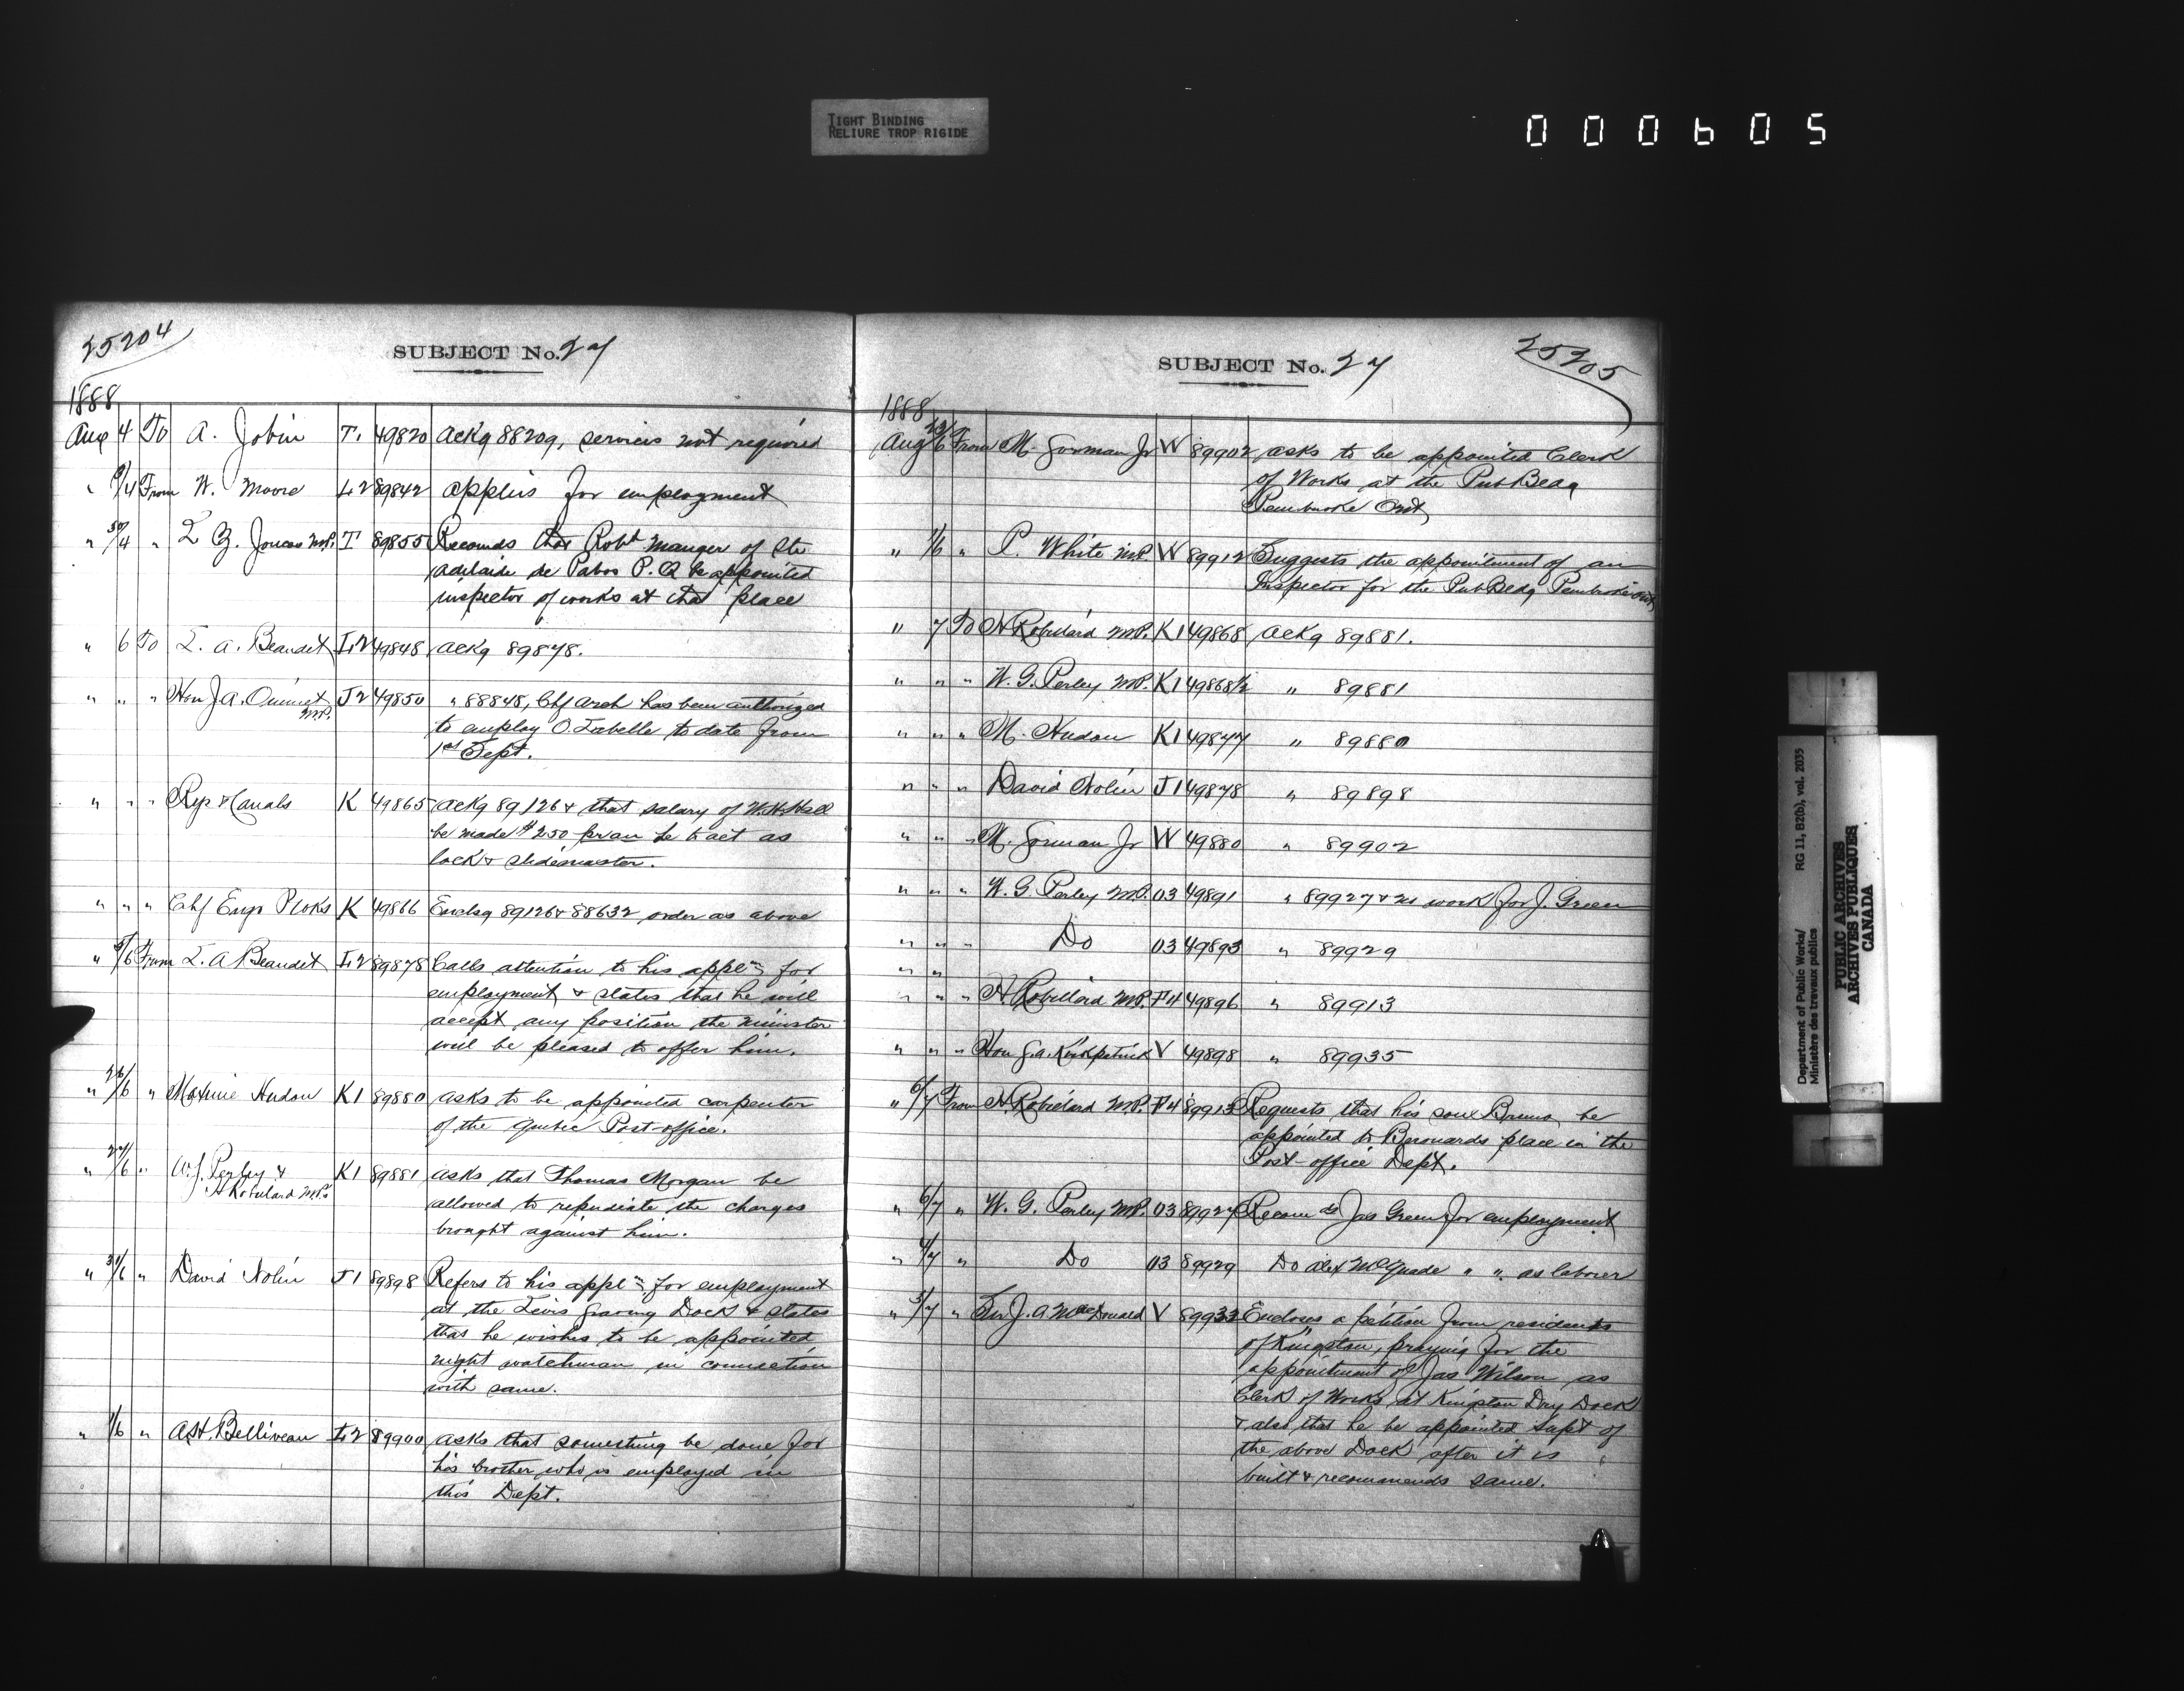 TIGHT BINDING
RELIURE TROP RIGIDE
000605
25204
SUBJECT No. 27
1888
Aug 4 To A. Jobin T. 49820 Ackg 88209, services not required
" 4 From W. Moore L2 89842 applies for employment
" 30/4 " L Z. Joncas M.P. T 89855 Recomds that Robt Manger of Ste
Adelaide de Pabos P.Q be appointed
inspector of works at that place
" 6 To L. A. Beaudet L2 49848 Ackg 89878.
" " " Hon J A. Ouimet M.P. J2 49850 " 88848, Chf Arch has been authorized
to employ O. Labelle to date from
1st Sept.
" " " Rys & Canals K 49865 Ackg 89126 & that salary of W.H. Hall
be made $250 pr an he to act as
lock & slidemaster.
" " " Chf Engr P Wks K 49866 Enclsg 89126 & 88632, order as above
" 6 From L. A Beaudet L2 89878 Calls attention to his appln for
employment & states that he will
accept any position the minister
will be pleased to offer him.
" 26/6 " Maxime Hudon K1 89880 asks to be appointed carpenter
of the Quebec Post-office.
" 27/6 " W. J. Perley & K1 89881 asks that Thomas Morgan be
H Robillard M.P.s
allowed to repudiate the charges
brought against him.
" 31/6 " David Nolin J1 89898 Refers to his appln for employment
at the Levis Graving Dock & states
that he wishes to be appointed
night watchman in connection
with same.
" 1/6 " A.H. Belliveau L2 89900 asks that something be done for
his brother who is employed in
this Dept.
SUBJECT No. 27
25205
1888
Aug 6 From M. Gorman Jr W 89902 asks to be appointed Clerk
of Works at the Pub Bldg
Pembroke Ont
" 1/6 " P. White M.P. W 89912 Suggests the appointment of an
Inspector for the Pub Bldg Pembroke Ont
" 7 To H Robillard M.P. K1 49868 Ackg 89881.
" " " W. G. Perley M.P. K1 49868½ " 89881
" " " M. Hudon K1 49877 " 89880
" " " David Nolin J1 49878 " 89898
" " " M. Gorman Jr W 49880 " 89902
" " " W. G. Perley M.P. 03 49891 " 89927 & no work for J. Green
" " " Do 03 49893 " 89929
" "
" " " H Robillard M.P. F4 49896 " 89913
" " " Hon G. A. Kirkpatrick V 49898 " 89935
" 6/7 From H. Robillard M.P. F4 89913 Requests that his son Bruno be
appointed to Berouards place in the
Post-office Dept.
" 6/7 " W. G. Perley M.P. 03 89927 Recomds Jas Green for employment
" 4/7 " Do 03 89929 Do Alex McQuade " " as laborer
" 3/7 " Sir J. A MacDonald V 89933 Encloses a petition from residents
of Kingston, praying for the
appointment of Jas Wilson as
Clerk of Works at Kingston Dry Dock
& also that he be appointed Supt of
the above Dock after it is
built & recommends same.
Department of Public Works/
Ministère des travaux publics
RG 11, B2(b), vol. 2035
PUBLIC ARCHIVES
ARCHIVES PUBLIQUES
CANADA